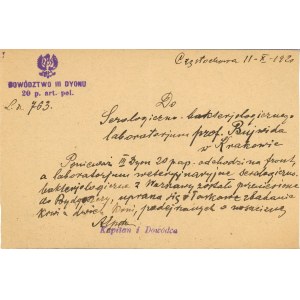 Częstochowa 11-X-1920
DOWÓDZTWO III DYONU
20 p. art. pol.
L.n. 763.
Do
Serologiczno-bakterjologicznego
laboratorjum prof. Bujwida
w Krakowie
Ponieważ III Dyon 20 p ap. odchodzi na front,
a laboratorjum weterynaryjne serologiczno-
bakterjologiczne z Warszawy zostało przeniesione
do Bydgoszczy, uprasza się o łaskawe zbadanie
krwi z dwóch koni, podejrzanych o nosaciznę
Kapitan i Dowódca